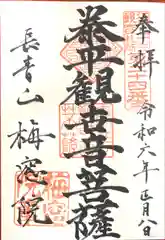 奉拝 令和六年正月八日
泰平観世音菩薩
長青山 梅窓院